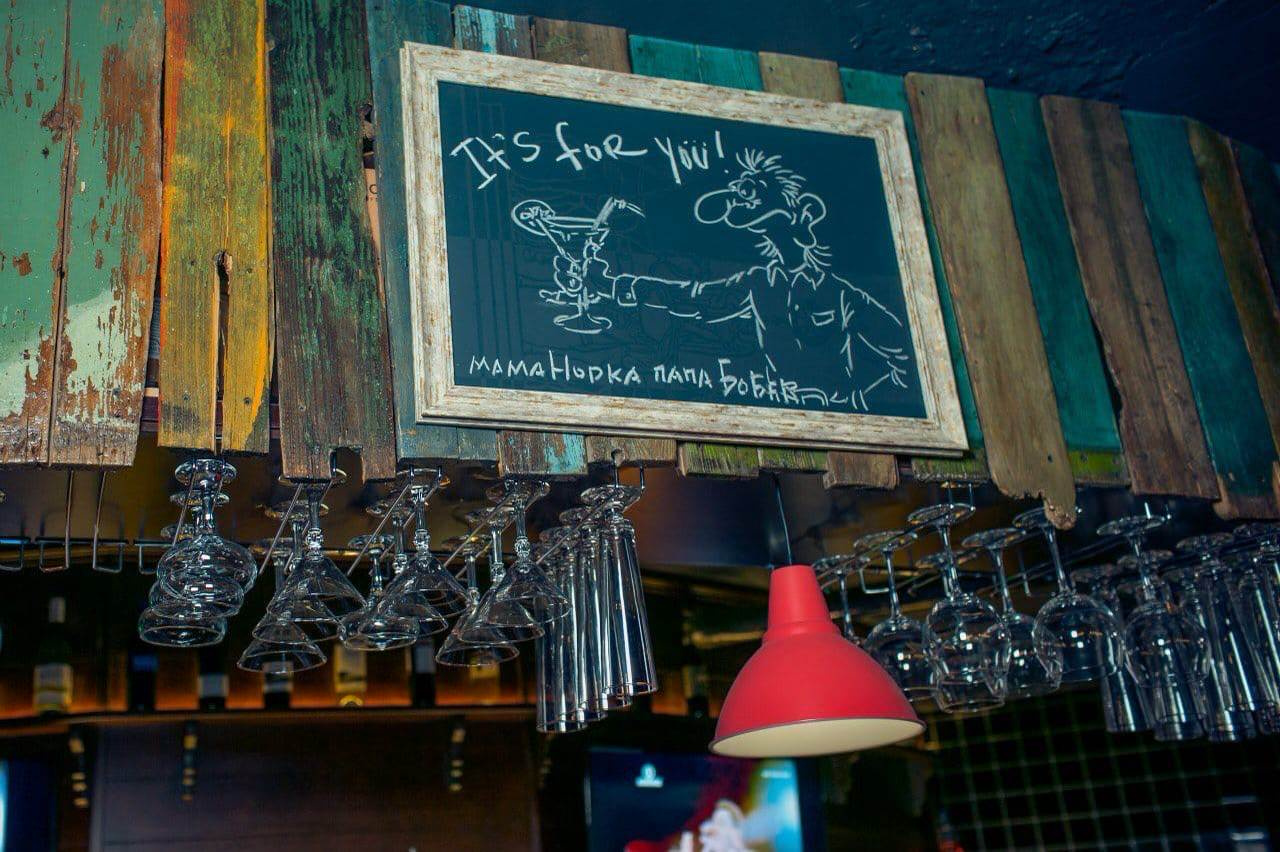 It's for you!
мамаНорка папа Бобёр